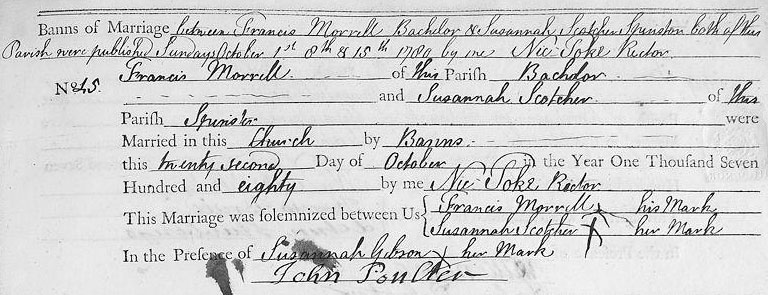 Banns of Marriage between Francis Morrell Bachelor & Susannah Scotcher Spinster both of this
Parish were published Sundays October 1st 8th & 15th 1780 by me Nic Toke Rector
No 45. Francis Morrell of this Parish Bachelor
and Susannah Scotcher of this
Parish Spinster were
Married in this Church by Banns
this twenty second Day of October in the Year One Thousand Seven
Hundred and eighty by me Nic Toke Rector
This Marriage was solemnized between Us { Francis Morrell X his Mark
Susannah Scotcher X her Mark
In the Presence of Susannah Gibson X her Mark
John Poulter